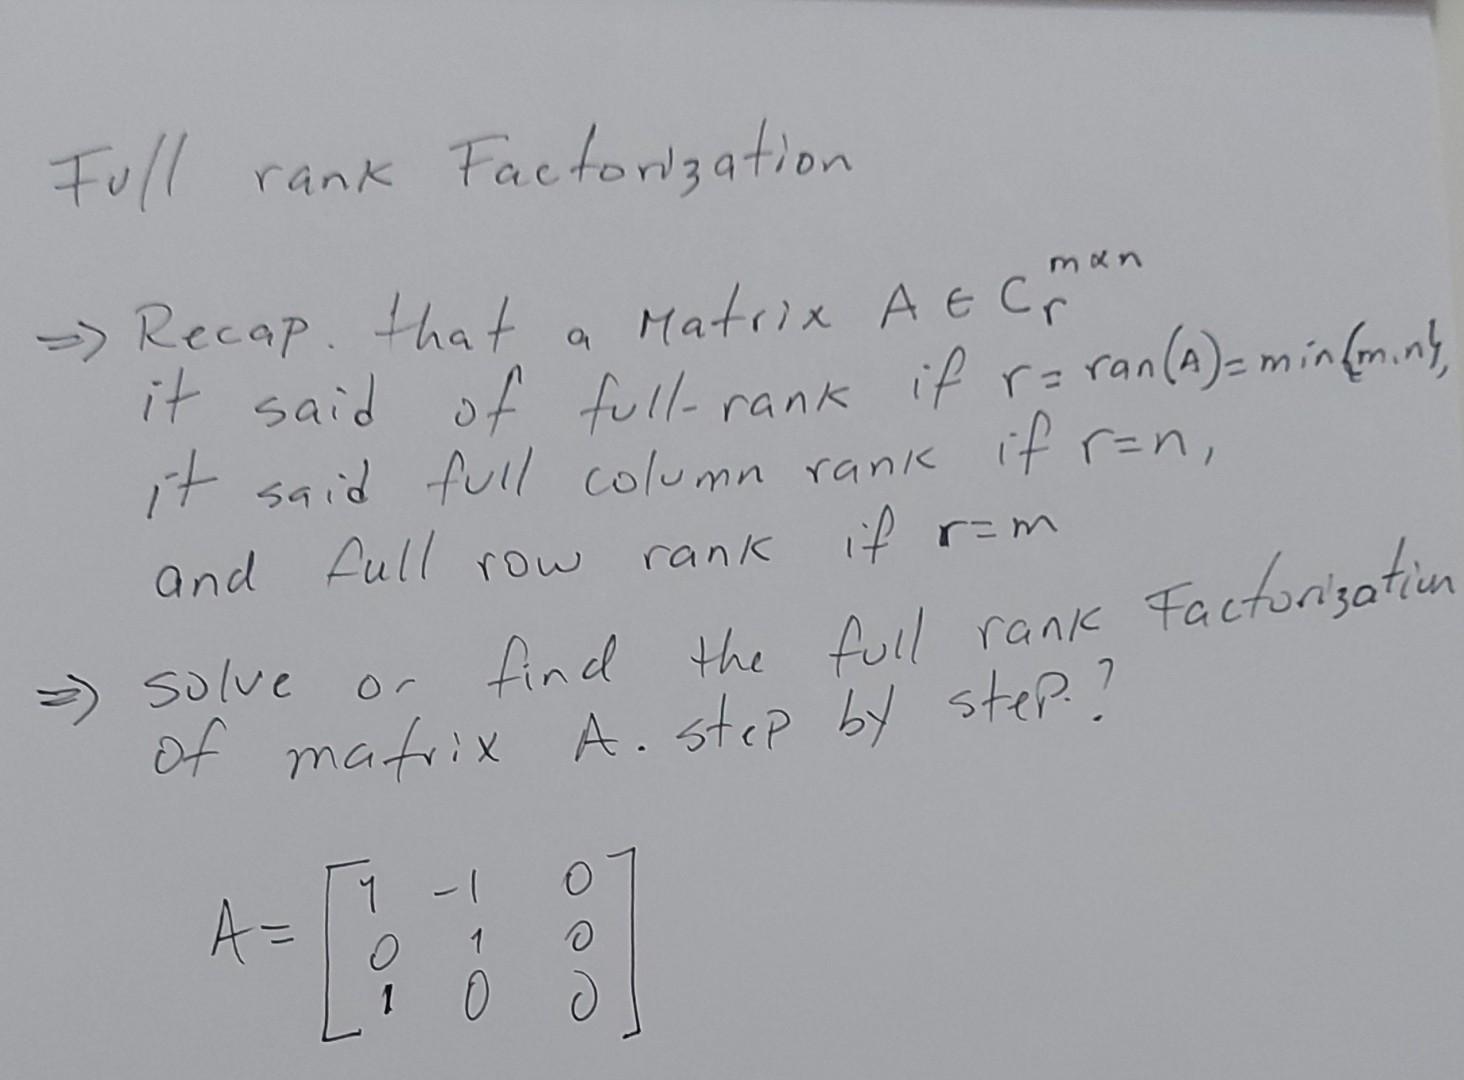 Full rank Factorization
⇒ Recap. that a Matrix A ∈ C_r^{m×n}
it said of full-rank if r = ran(A) = min{m.n},
it said full column rank if r=n,
and full row rank if r=m
⇒ solve or find the full rank Factorization
of matrix A. step by step.?
A = [ 1 -1 0
0 1 0
1 0 0 ]